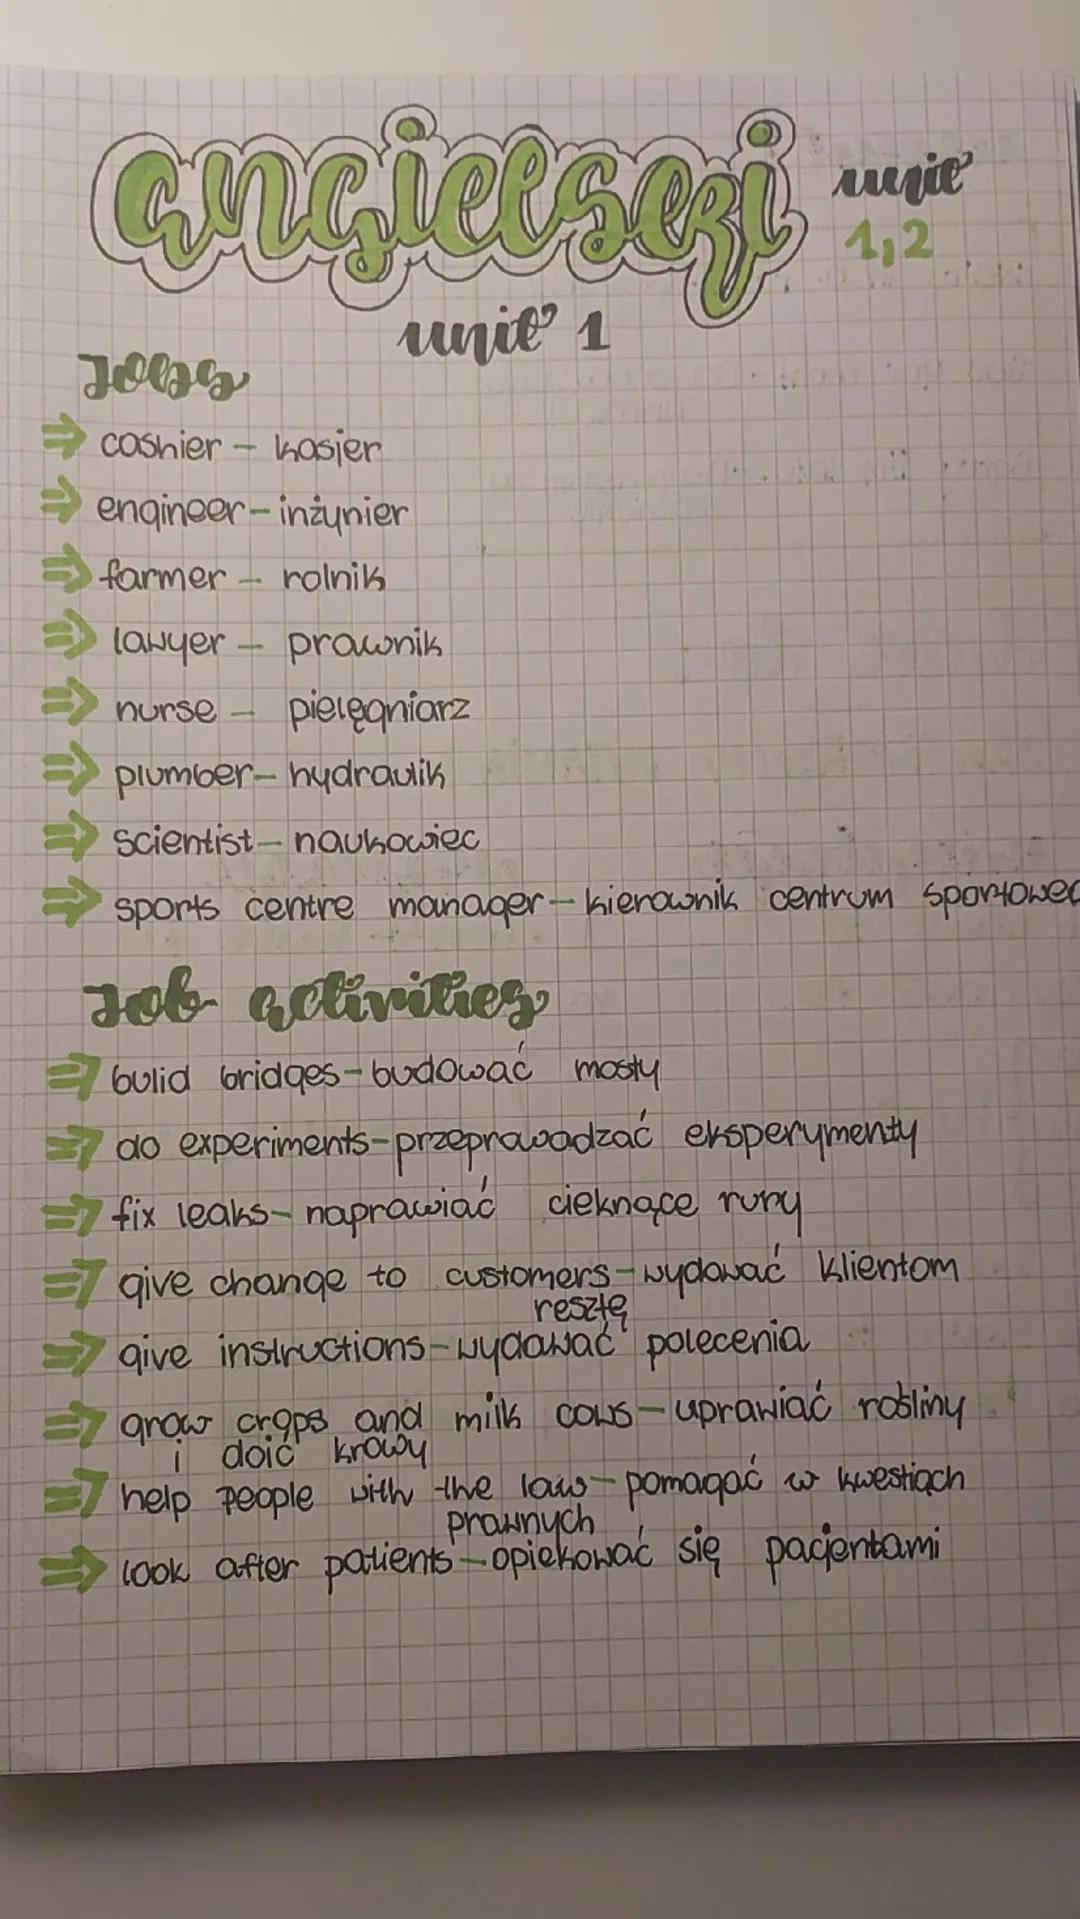 angielski
unit
1,2
unit 1
Jobs
⇒ cashier – kasjer
⇒ engineer – inżynier
⇒ farmer – rolnik
⇒ lawyer – prawnik
⇒ nurse – pielęgniarz
⇒ plumber – hydraulik
⇒ scientist – naukowiec
⇒ sports centre manager – kierownik centrum sportoweg
Job activities
⇒ bulid bridges – budować mosty
⇒ do experiments – przeprawadzać eksperymenty
⇒ fix leaks – naprawiać cieknące rury
⇒ give change to customers – wydawać klientom
resztę
⇒ give instructions – wydawać polecenia
⇒ grow crops and milk cows – uprawiać rośliny
i doić krowy
⇒ help people with the law – pomagać w kwestiach
prawnych
⇒ look after patients – opiekować się pacjentami